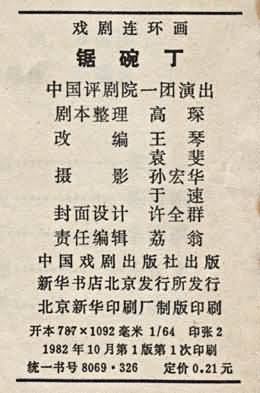 戏剧连环画
锯碗丁
中国评剧院一团演出
剧本整理 高琛
改编 王琴
袁斐
摄影 孙宏华
于速
封面设计 许全群
责任编辑 荔翁
中国戏剧出版社出版
新华书店北京发行所发行
北京新华印刷厂制版印刷
开本787×1092毫米 1/64 印张2
1982年10月第1版第1次印刷
统一书号8069·326 定价0.21元